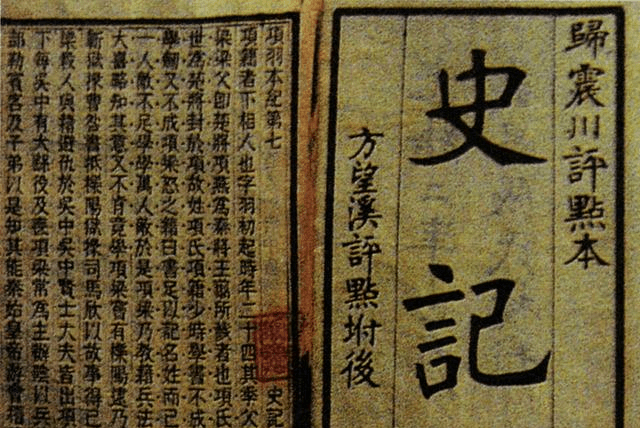 歸震川評點本
史記
方望溪評點坿後
史記
項羽本紀第七
項籍者下相人也字羽初起時年二十四其季父
梁梁父卽楚將項燕爲秦將王翦所戮者也項氏
世爲楚將封於項故姓項氏項籍少時學書不成
學劒又不成項梁怒之籍曰書足以記名姓而已
一人敵不足學學萬人敵於是項梁乃敎籍兵法
大喜略知其意又不肯竟學項梁嘗有櫟陽逮乃
蘄獄掾曹咎書抵櫟陽獄掾司馬欣以故事得已
梁殺人與籍避仇於吳中吳中賢士大夫皆出項
下每吳中有大繇役及喪項梁常爲主辦陰以兵
部勒賓客及子弟以是知其能秦始皇帝游會稽